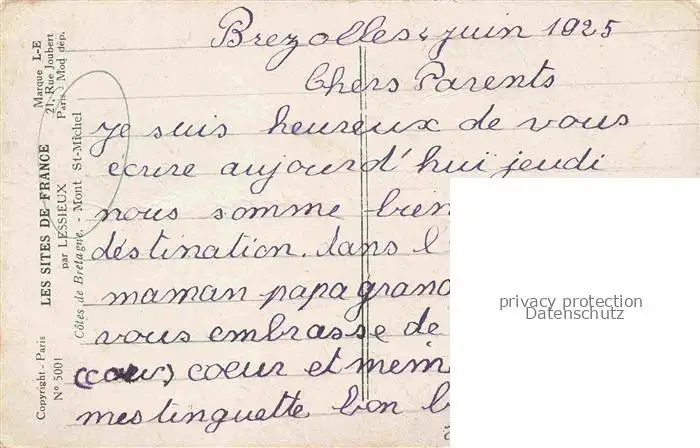 Brezolles 4 juin 1925
Chers Parents
je suis heureux de vous
ecrire aujourd'hui jeudi
nous somme bien
déstination. dans l'
maman papa grand
vous embrasse de
(cour) coeur et meim
mestinguette bon b
Marque L-E
21, Rue Joubert
Paris - Mod dép.
LES SITES DE FRANCE
par LESSIEUX
Côtes de Bretagne. - Mont St-Michel
Copyright - Paris
N° 5001
privacy protection
Datenschutz